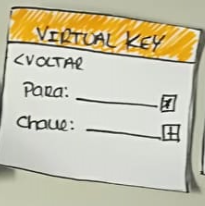 VIRTUAL KEY
<VOLTAR
Para:
Chave: